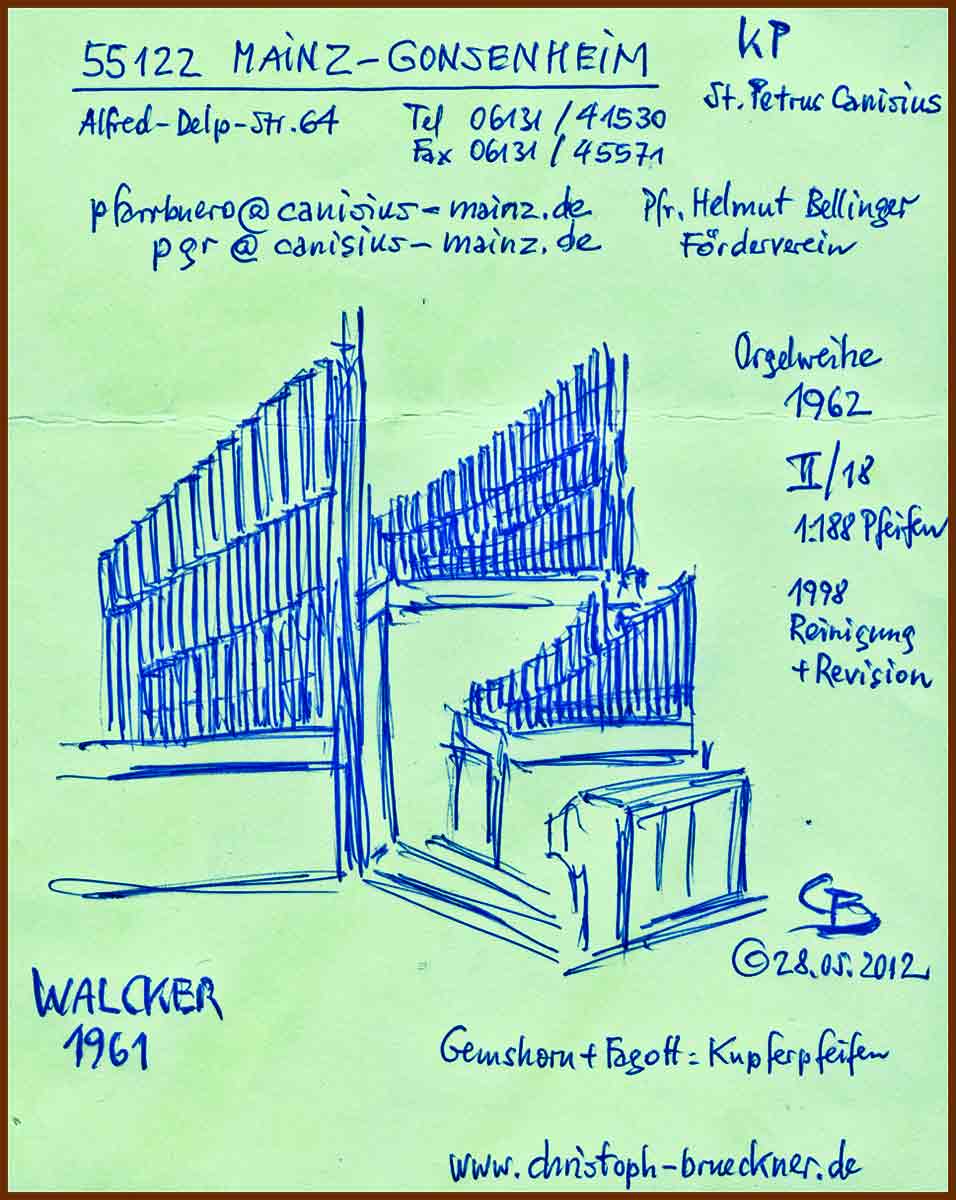 55122 MAINZ-GONSENHEIM
KP
St. Petrus Canisius
Alfred-Delp-Str. 64
Tel 06131/41530
Fax 06131/45571
pfarrbuero@canisius-mainz.de
pgr@canisius-mainz.de
Pfr. Helmut Bellinger
Förderverein
Orgelweihe
1962
II/18
1.188 Pfeifen
1998
Reinigung
+ Revision
CB
©28.05.2012
WALCKER
1961
Gemshorn + Fagott = Kupferpfeifen
www.christoph-brueckner.de